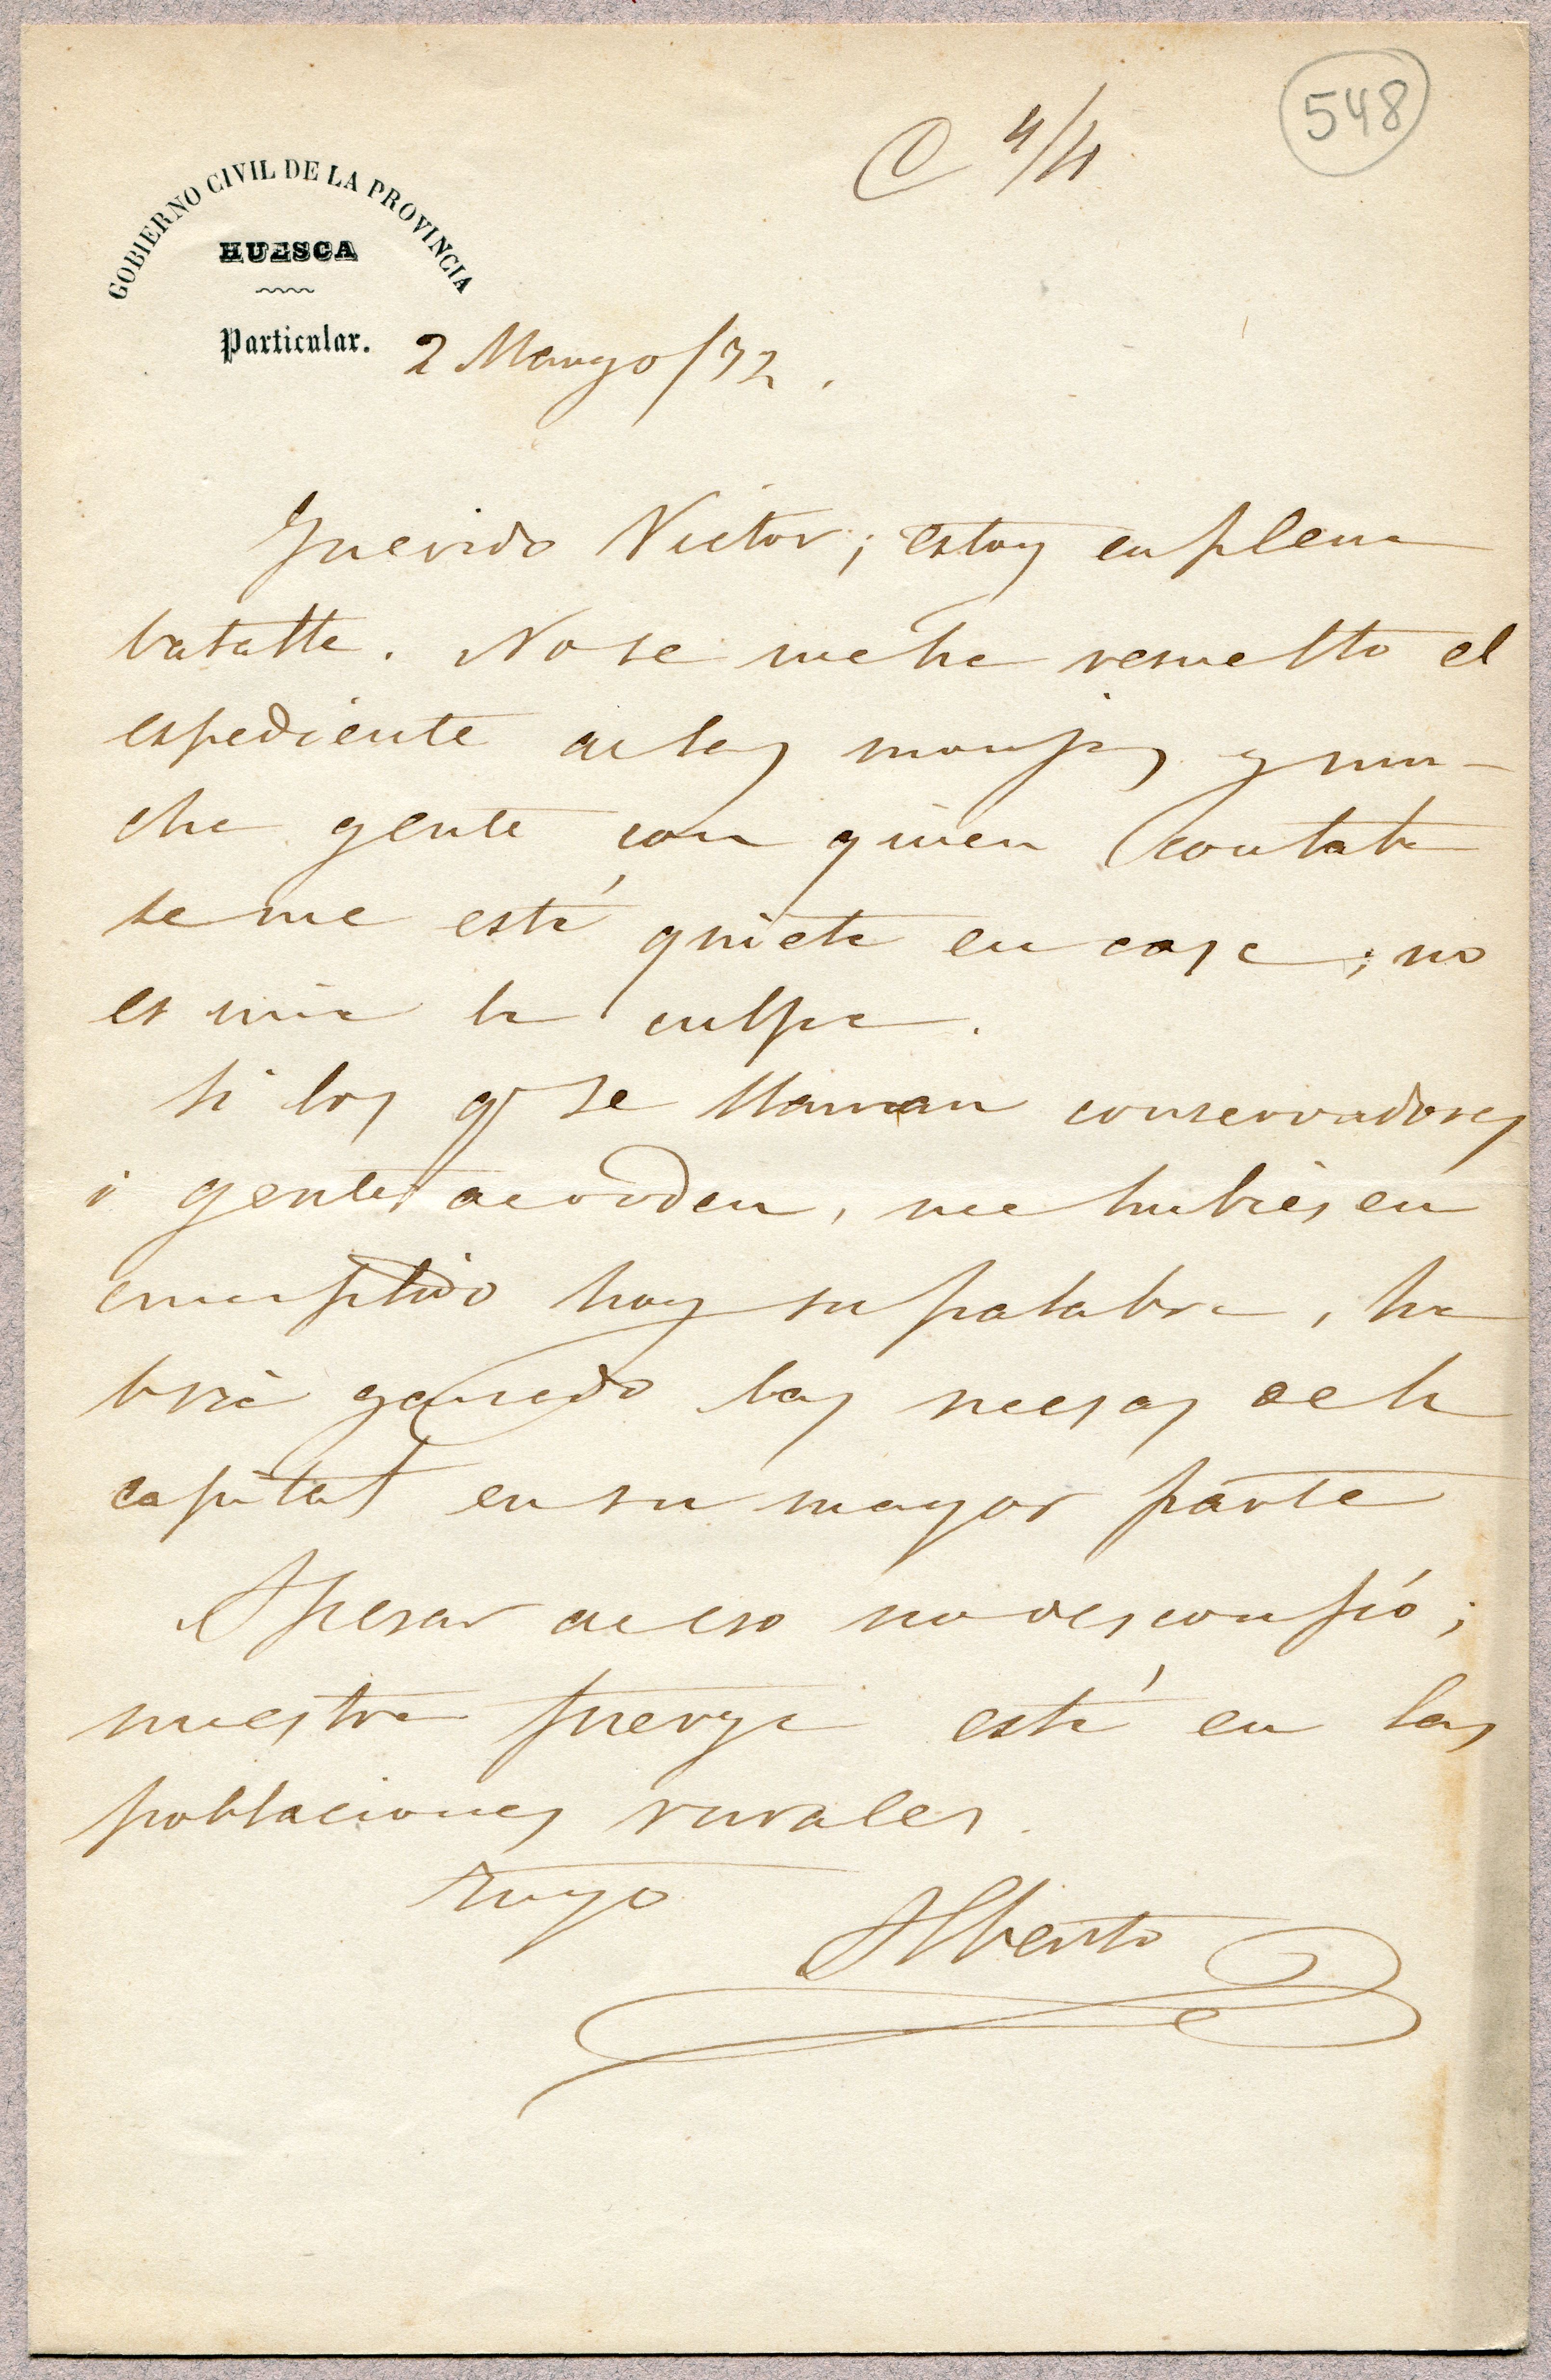 548
C 4/4
GOBIERNO CIVIL DE LA PROVINCIA
HUESCA
Particular.
2 Marzo/72.
Querido Victor; estoy en plena
batalla. No se me ha resuelto el
espediente de las monjas y mu-
cha gente con quien contaba
se me está quieta en casa; no
es mia la culpa.
Si los q. se llaman conservadores
i gente de orden, me hubiesen
cumplido hoy su palabra, ha
bria ganado las mesas de la
capital en su mayor parte
Apesar de eso no desconfió;
nuestra fuerza está en las
poblaciones rurales.
Tuyo
Alberto